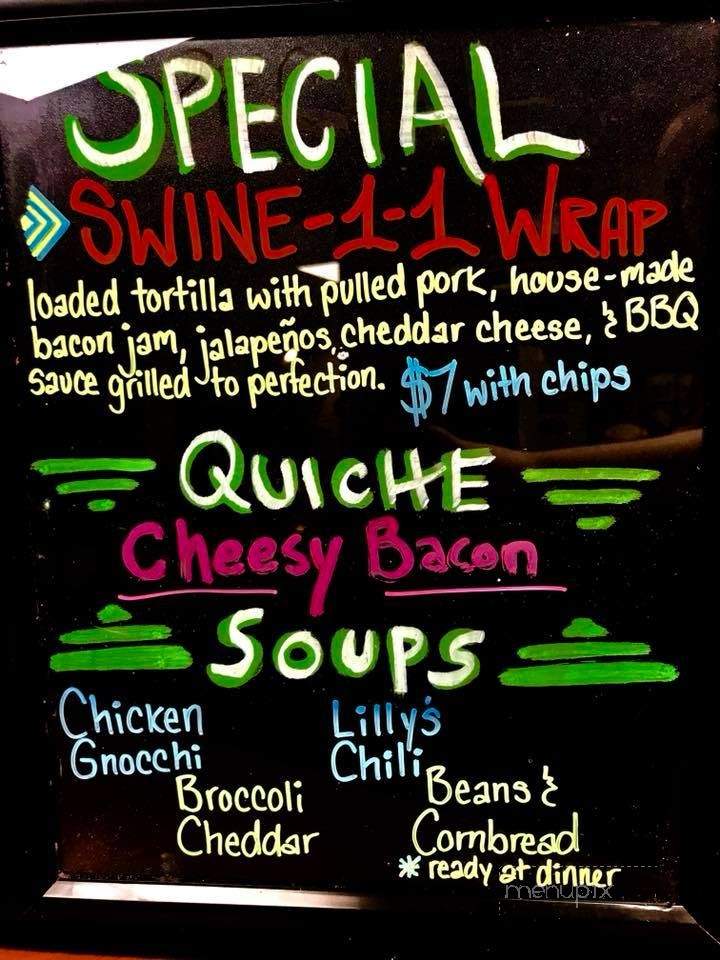 SPECIAL
SWINE-1-1 WRAP
loaded tortilla with pulled pork, house-made
bacon jam, jalapeños, cheddar cheese, & BBQ
sauce grilled to perfection. $7 with chips
QUICHE
Cheesy Bacon
SOUPS
Chicken
Gnocchi
Lilly's
Chili
Broccoli
Cheddar
Beans &
Cornbread
* ready at dinner
menupix